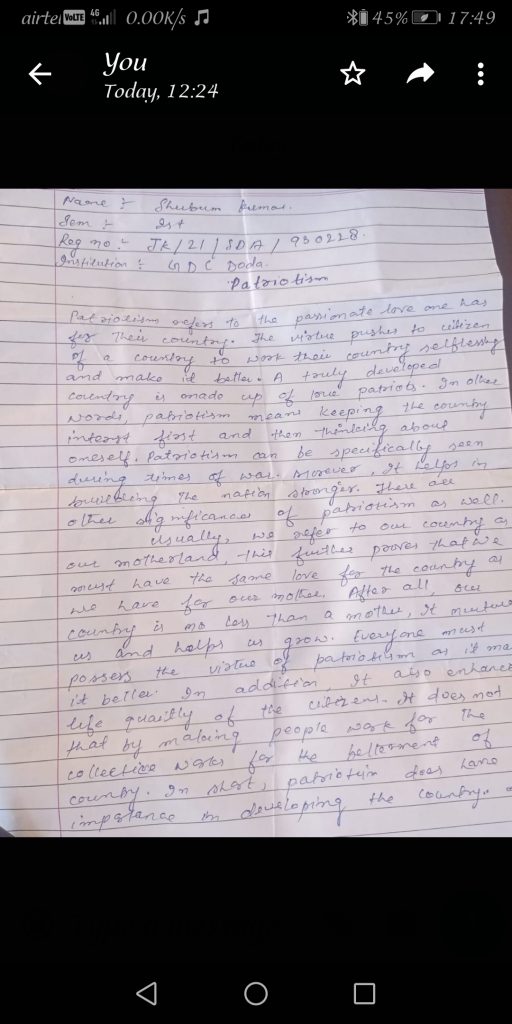 airtel VoLTE 4G 0.00K/s 45% 17:49
You
Today, 12:24
Name :- Shubum Kumar.
Sem :- Ist
Reg no :- JK/21/SDA/930228.
Institution :- GDC Doda.
Patriotism
Patriotism refers to the passionate love one has
for their country. The virtue pushes to citizen
of a country to work their country selflessly
and make it better. A truly developed
country is made up of love patriots. In other
words, patriotism means keeping the country
interest first and then thinking about
oneself. Patriotism can be specifically seen
during times of war. Morever, It helps in
building the nation stronger. There are
other significances of patriotism as well.
Usually, we refer to our country as
our motherland, this further proves that we
must have the same love for the country as
we have for our mother. After all, our
country is no less than a mother, It nurture
us and helps us grow. Everyone must
possess the virtue of patriotism as it ma
it better. In addition, It also enhances
life quaitly of the citizens. It does not
that by making people work for the
collective works for the betterment of
country. In short, patriotism does have
importance in developing the country.